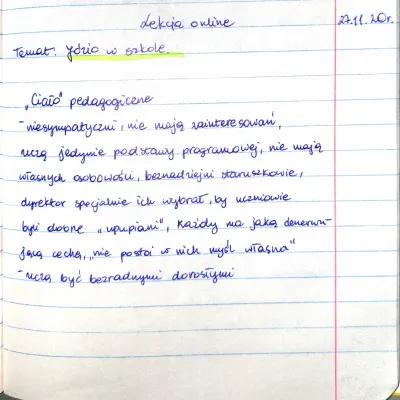 Lekcja online 27.11.20r.
Temat: Józio w szkole.
„Ciało" pedagogiczne
- niesympatyczni, nie mają zainteresowań,
uczą jedynie podstawy programowej, nie mają
własnych osobowości, beznadziejni staruszkowie,
dyrektor specjalnie ich wybrał, by uczniowie
byli dobrze „upupiani", każdy ma jakąś denerwu-
jącą cechę, „nie postoi w nich myśl własna"
- uczą być bezradnymi dorosłymi